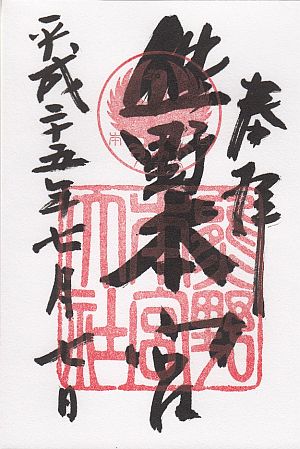 奉拝
熊野本宮
平成二十五年七月七日
熊野
本宮
大社